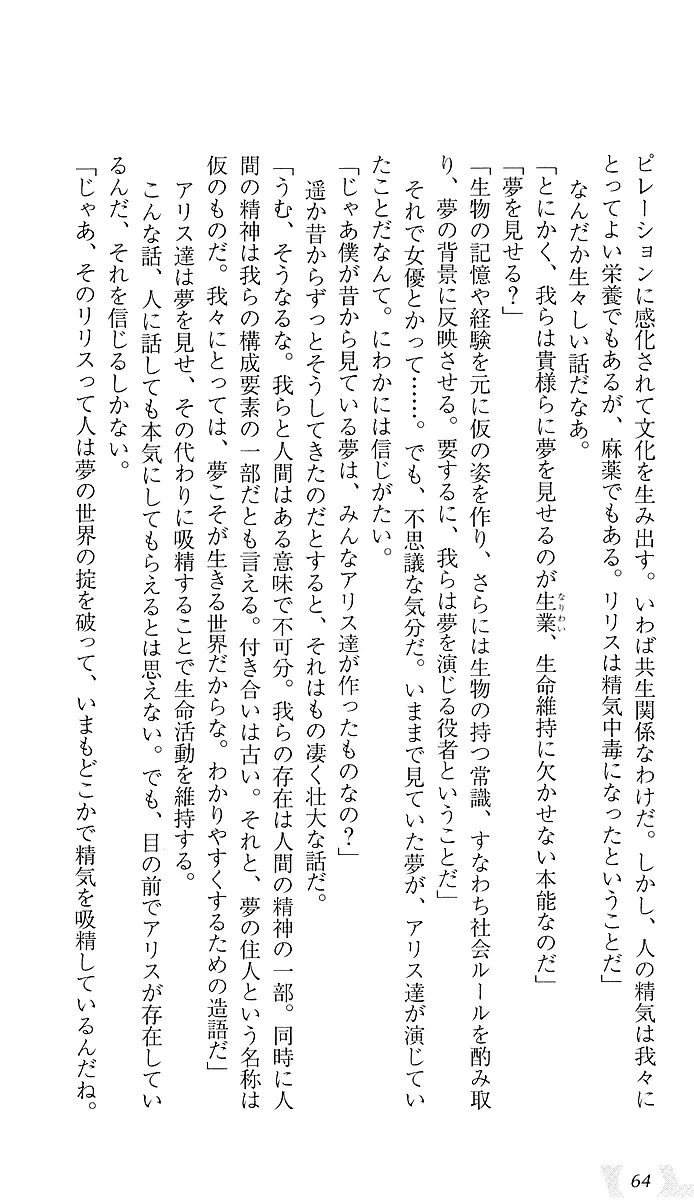 ピレーションに感化されて文化を生み出す。いわば共生関係なわけだ。しかし、人の精気は我々に
とってよい栄養でもあるが、麻薬でもある。リリスは精気中毒になったということだ」
なんだか生々しい話だなあ。
「とにかく、我らは貴様らに夢を見せるのが生業、生命維持に欠かせない本能なのだ」
なりわい
「夢を見せる？」
「生物の記憶や経験を元に仮の姿を作り、さらには生物の持つ常識、すなわち社会ルールを酌み取
り、夢の背景に反映させる。要するに、我らは夢を演じる役者ということだ」
それで女優とかって……。でも、不思議な気分だ。いままで見ていた夢が、アリス達が演じてい
たことだなんて。にわかには信じがたい。
「じゃあ僕が昔から見ている夢は、みんなアリス達が作ったものなの？」
遥か昔からずっとそうしてきたのだとすると、それはもの凄く壮大な話だ。
「うむ、そうなるな。我らと人間はある意味で不可分。我らの存在は人間の精神の一部。同時に人
間の精神は我らの構成要素の一部だとも言える。付き合いは古い。それと、夢の住人という名称は
仮のものだ。我々にとっては、夢こそが生きる世界だからな。わかりやすくするための造語だ」
アリス達は夢を見せ、その代わりに吸精することで生命活動を維持する。
こんな話、人に話しても本気にしてもらえるとは思えない。でも、目の前でアリスが存在してい
るんだ、それを信じるしかない。
「じゃあ、そのリリスって人は夢の世界の掟を破って、いまもどこかで精気を吸精しているんだね。
64